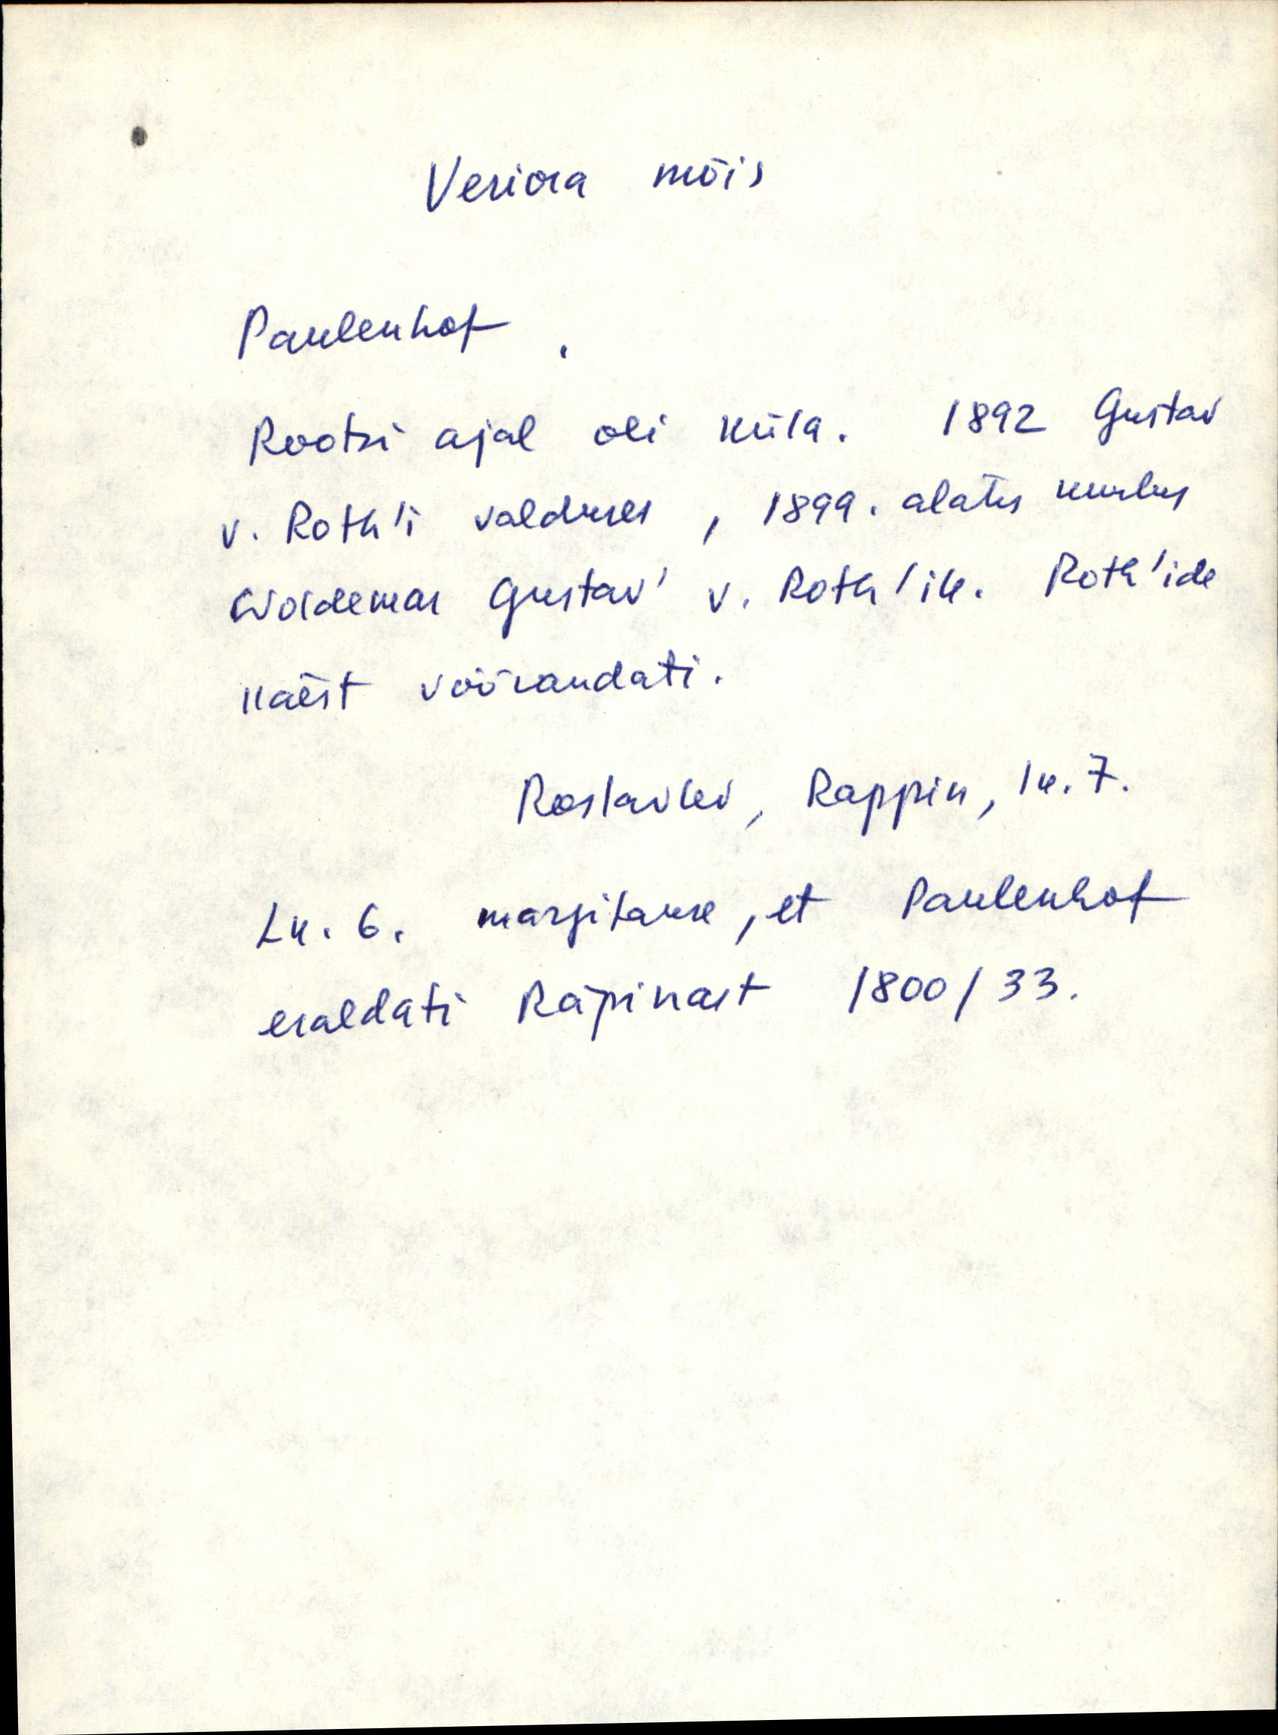 Veriora mõis
Paulenhof.
Rootsi ajal oli küla. 1892 Gustav
v. Roth'i valduses, 1899. alates kuulus
Woldemar Gustav' v. Roth'ile. Roth'ide
käest võõrandati.
Roslavlev, Rappin, lk. 7.
Lk. 6. märgitakse, et Paulenhof
eraldati Räpinast 1800/33.